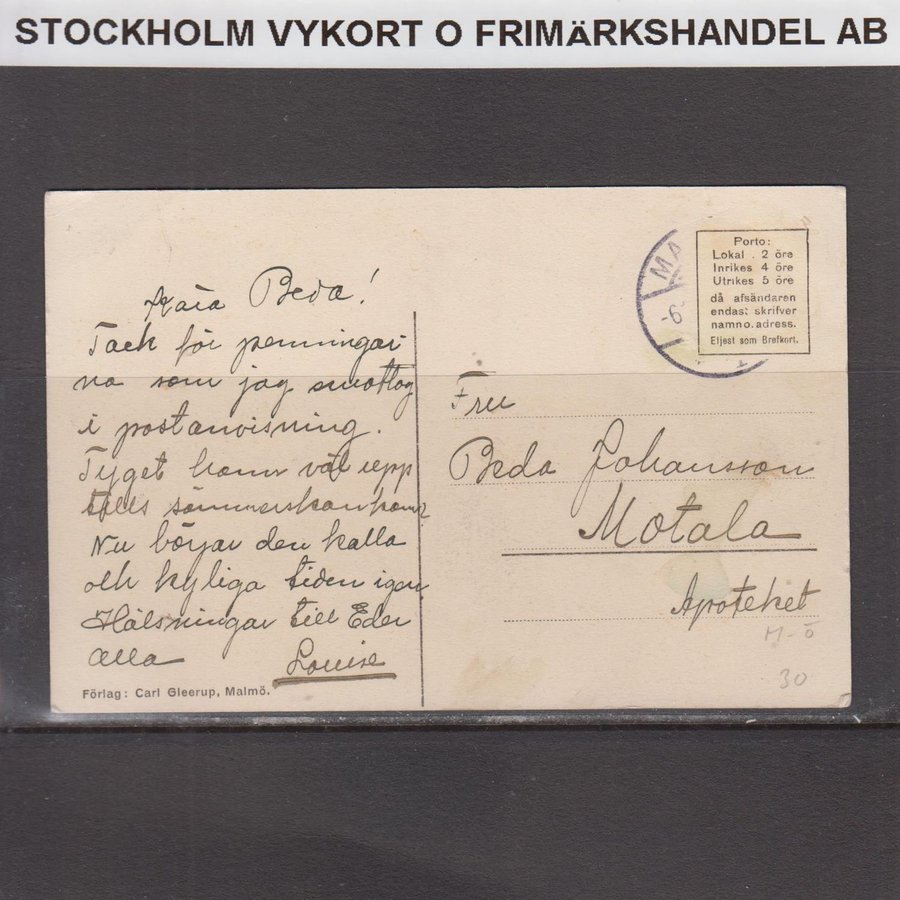 STOCKHOLM VYKORT O FRIMÄRKSHANDEL AB
Kära Beda!
Tack för penningar
na som jag emottog
i postanvisning.
Tyget kom väl upp
sömmerskan
Nu börjar den kalla
och kyliga tiden igen
Hälsningar till Eder
alla Louise
Förlag: Carl Gleerup, Malmö.
MA
6.
Porto:
Lokal . 2 öre
Inrikes 4 öre
Utrikes 5 öre
då afsändaren
endast skrifver
namn o. adress.
Eljest som Brefkort.
Fru
Beda Johansson
Motala
Apoteket
M-Ö
30